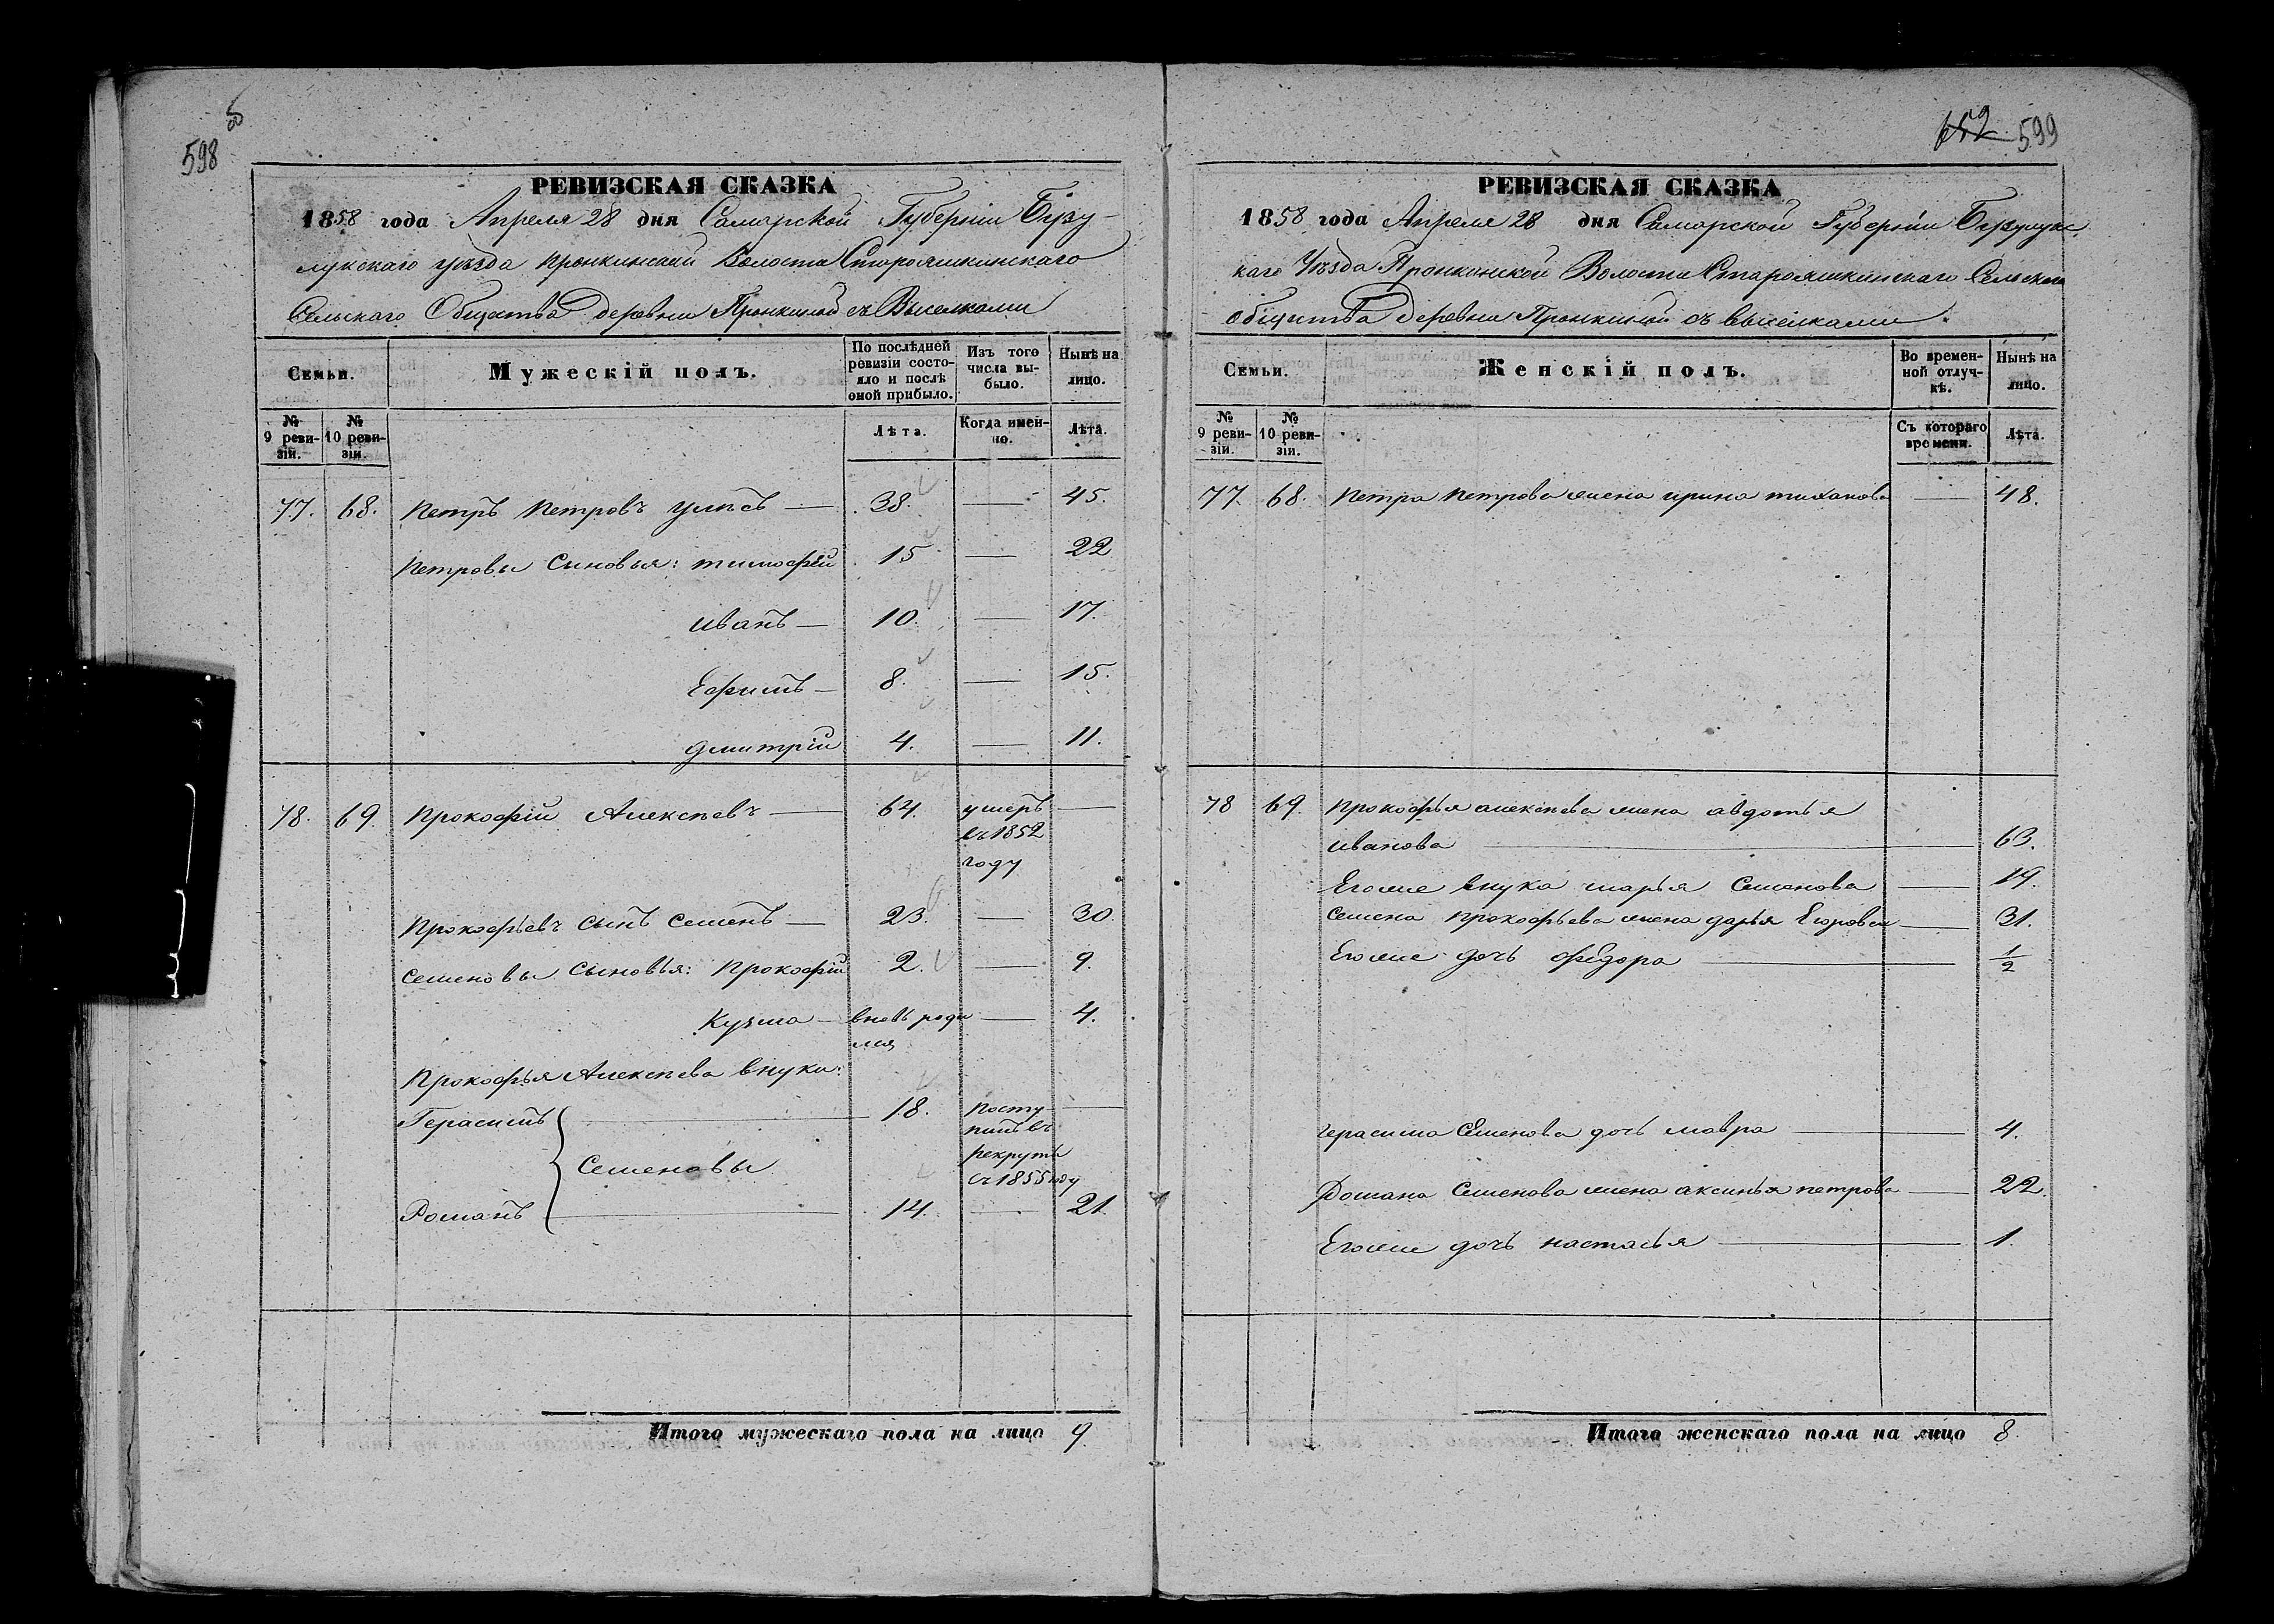 598 об
РЕВИЗСКАЯ СКАЗКА
1858 года Апреля 28 дня Самарской Губерніи Бузу-
лукскаго уѣзда Пронкинской Волости Старояшкинскаго
Сельскаго Общества деревни Пронкиной съ Выселками
Семьи.
Мужескій полъ.
По послѣдней ревизіи состояло и послѣ оной прибыло.
Изъ того числа выбыло.
Нынѣ на лицо.
№ 9 ревизіи.
№ 10 ревизіи.
Лѣта.
Когда именно.
Лѣта.
77. 68. Петръ Петровъ — 38. — 45.
Петровы Сыновья: тимофѣй 15 — 22
Иванъ — 10. — 17.
Ефимъ — 8. — 15.
дмитрій 4. — 11.
78. 69. Прокофій Алексѣевъ — 64. умеръ —
въ 1852
году
Прокофьевъ сынъ семенъ — 23. — 30.
семеновы сыновья: Прокофій 2. — 9.
Кузма — вновь роди — 4.
лся
Прокофья Алексѣева внуки:
Герасимъ — 18. посту- —
пилъ въ
Семеновы рекруты
въ 1855 году
Романъ — 14. — 21.
Итого мужескаго пола на лицо 9.
652 599
РЕВИЗСКАЯ СКАЗКА
1858 года Апреля 28 дня Самарской Губерніи Бузулукс
каго Уѣзда Пронкинской Волости Старояшкинскаго Сельскаго
общества деревни Пронкиной съ выселками.
Семьи.
Женскій полъ.
Во временной отлучкѣ.
Нынѣ на лицо.
№ 9 ревизіи.
№ 10 ревизіи.
Съ котораго времени.
Лѣта.
77. 68. Петра Петрова жена ирина тиханова — 48.
78 69. Прокофья алексѣева жена авдотья
иванова — 63.
Егоже внука марья Семенова — 19.
семена прокофьева жена дарья Егорова — 31.
Егоже дочь фѣдора — 1/2
герасима Семенова дочь мавра — 4.
Романа Семенова жена аксинья петрова — 22.
Егоже дочь настасья — 1.
Итого женскаго пола на лицо 8.